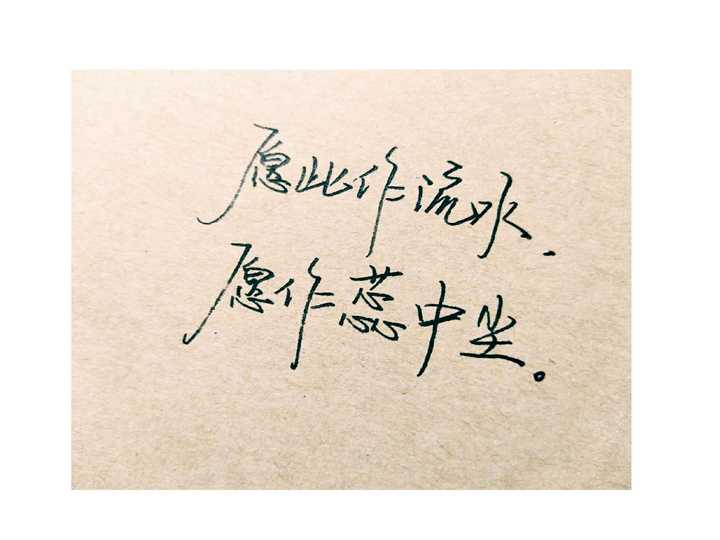 愿此作流水.
愿作蕊中尘。